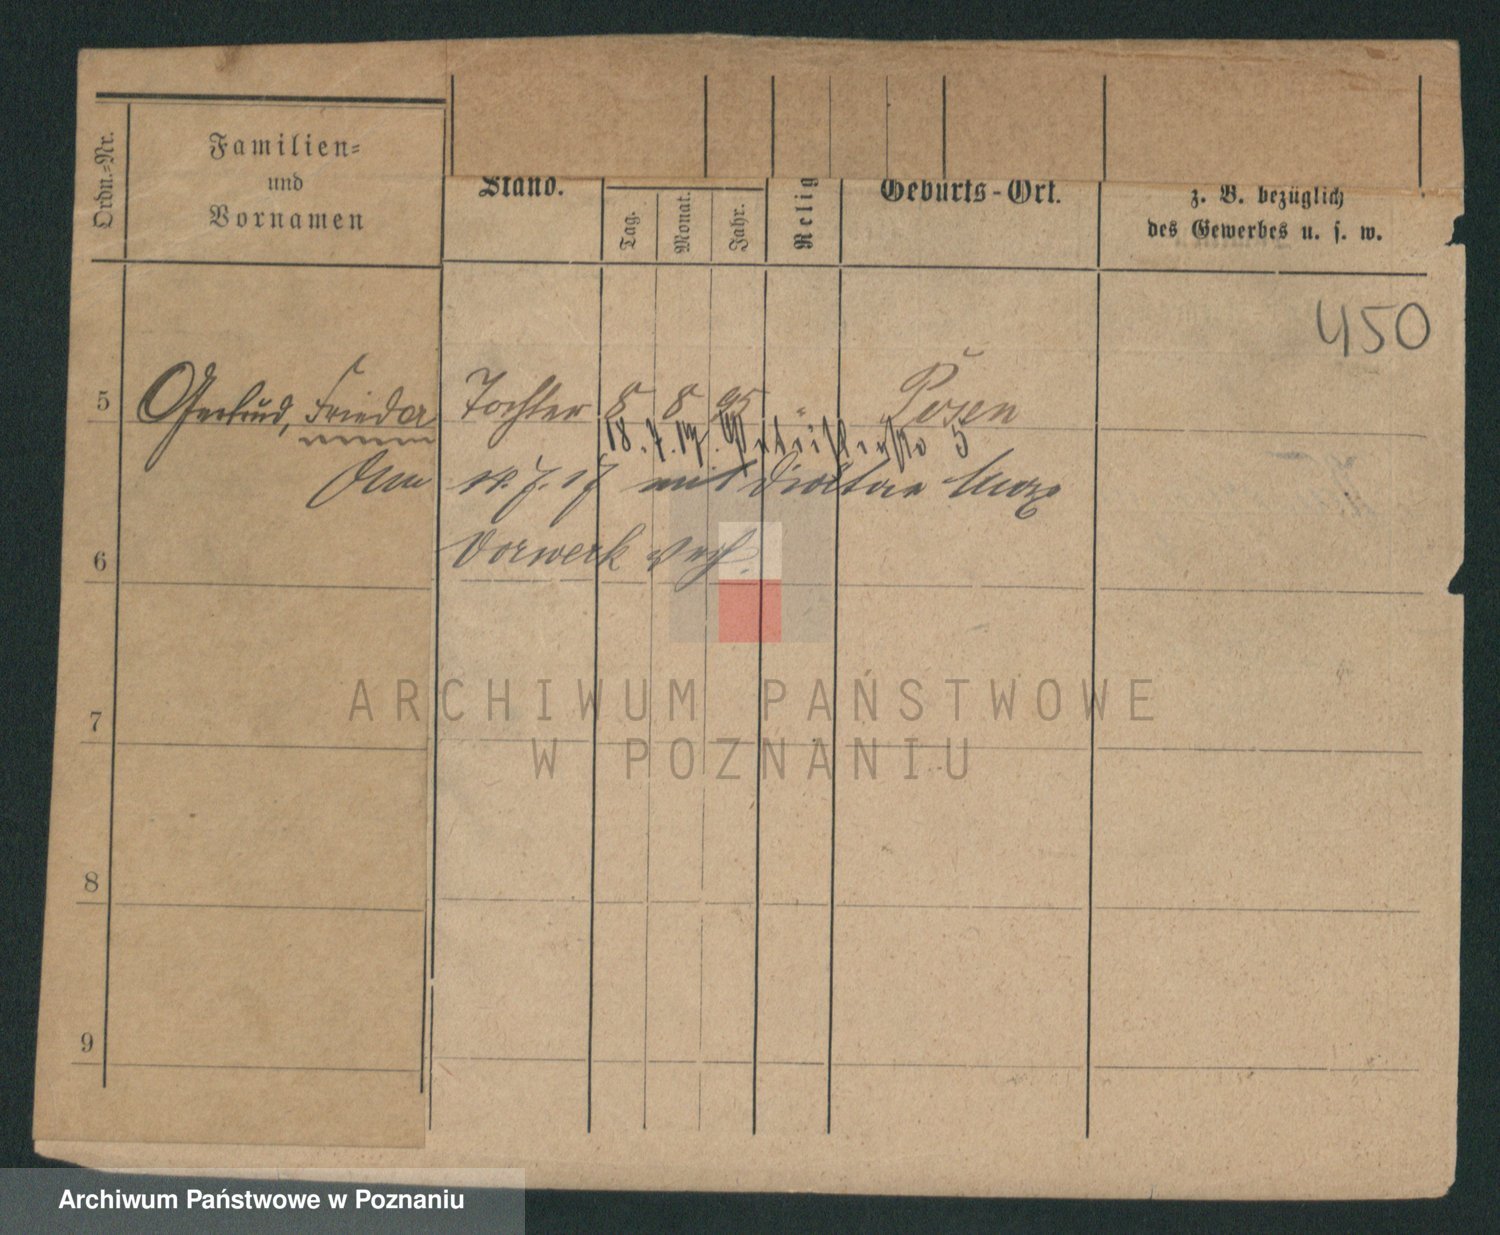 Ordn.=Nr.
Familien=
und
Vornamen
Stand.
Tag.
Monat.
Jahr.
Relig
Geburts-Ort.
z. B. bezüglich
des Gewerbes u. s. w.
450
5 Gertrud, Frieda Tochter 8 8 95 " Posen
18.7.17. 5
Am 14.7.17 mit Max
6 Vorwerk verh.
7
8
9
ARCHIWUM PAŃSTWOWE
W POZNANIU
Archiwum Państwowe w Poznaniu